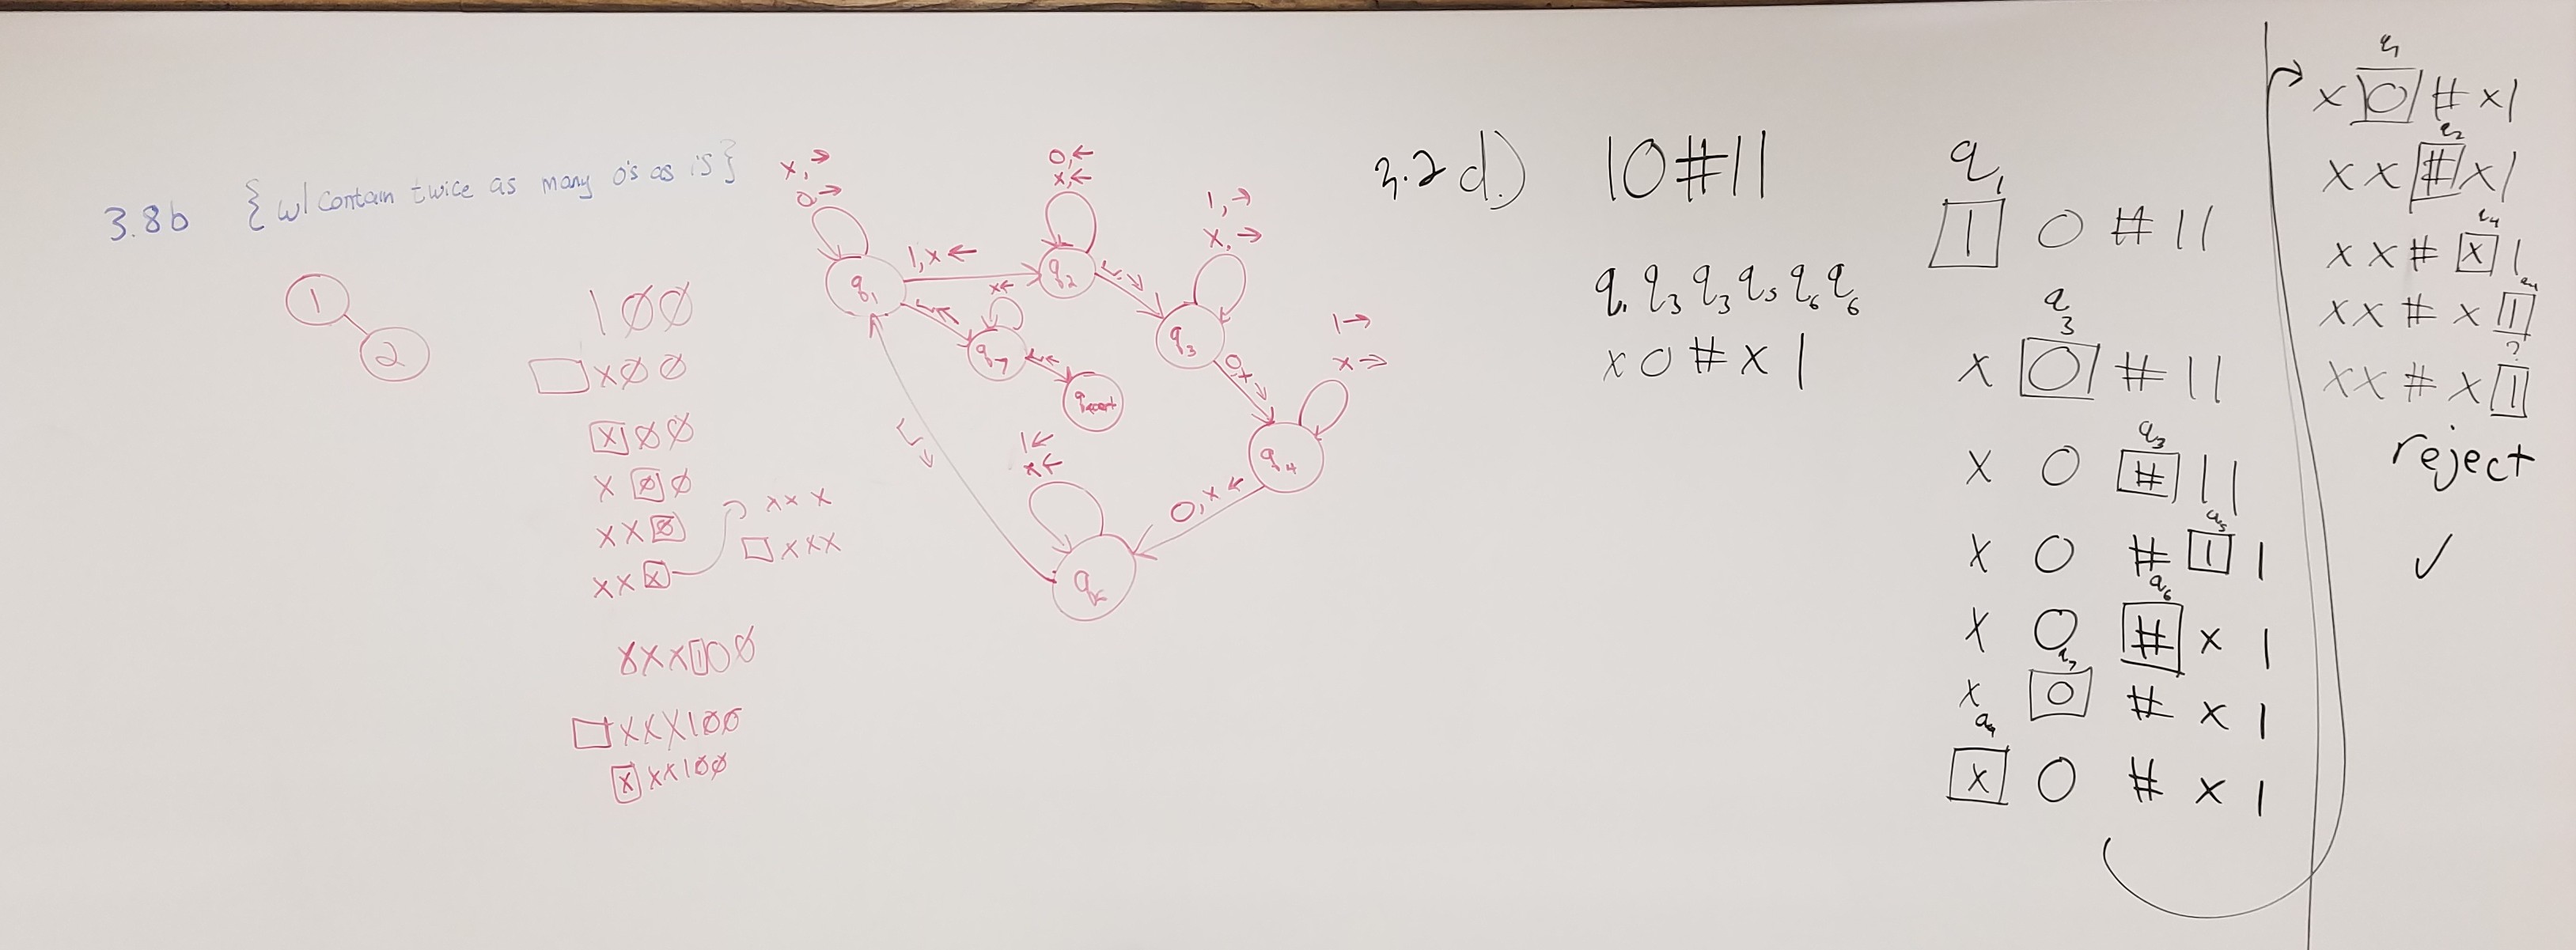 3.8b { w | contain twice as many 0's as 1s }
1
2
1 0 0
x 0 0
x 0 0
x 0 0
x x 0
x x x
x x x
x x x
x x x 1 0 0
x x x 1 0 0
x x x 1 0 0
x, →
0 →
q1
1, x ←
0, ←
x, ←
q2
1, →
x, →
q3
0, x →
1 →
x →
q4
0, x ←
1 ←
x ←
x ←
q7
qaccept
3.2 d.)
10#11
q1 q3 q3 q5 q6 q6
x 0 # x 1
q1
1 0 # 1 1
q3
x 0 # 1 1
q3
x 0 # 1 1
q5
x 0 # 1 1
q6
x 0 # x 1
q7
x 0 # x 1
x 0 # x 1
q1
x 0 # x 1
q2
x x # x 1
q4
x x # x 1
q4
x x # x 1
?
x x # x 1
reject
✓